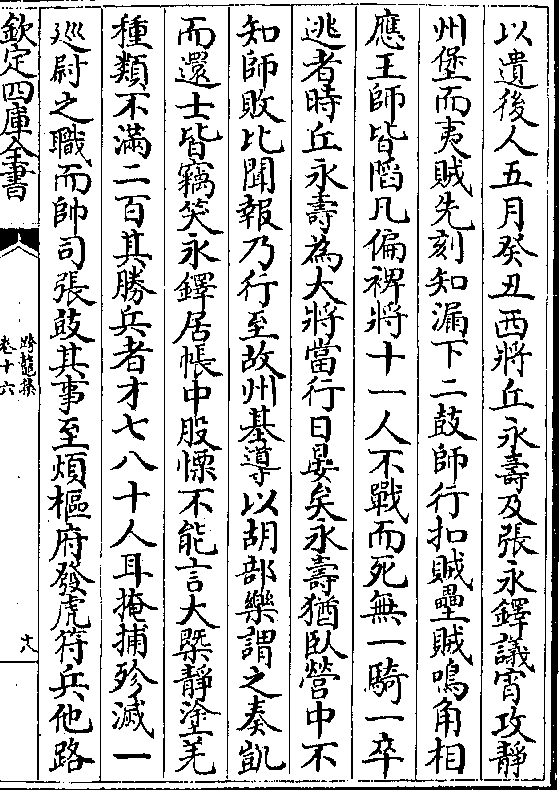 以遺後人五月癸丑西將丘永壽及張永鐸議宵攻靜
州堡而夷賊先刻知漏下二鼓師行扣賊壘賊鳴角相
應王師皆䧟凡偏裨將十一人不戰而死無一騎一卒
逃者時丘永壽為大將當行日晏矣永壽猶臥營中不
知師敗比聞報乃行至故州基導以胡部樂謂之奏凱
而還士皆竊笑永鐸居帳中股慄不能言大槩靜塗羌
種類不滿二百其勝兵者才七八十人耳掩捕殄滅一
廵尉之職而帥司張皷其事至煩樞府發虎符兵他路
欽定四庫全書
跨鼇集
卷十六